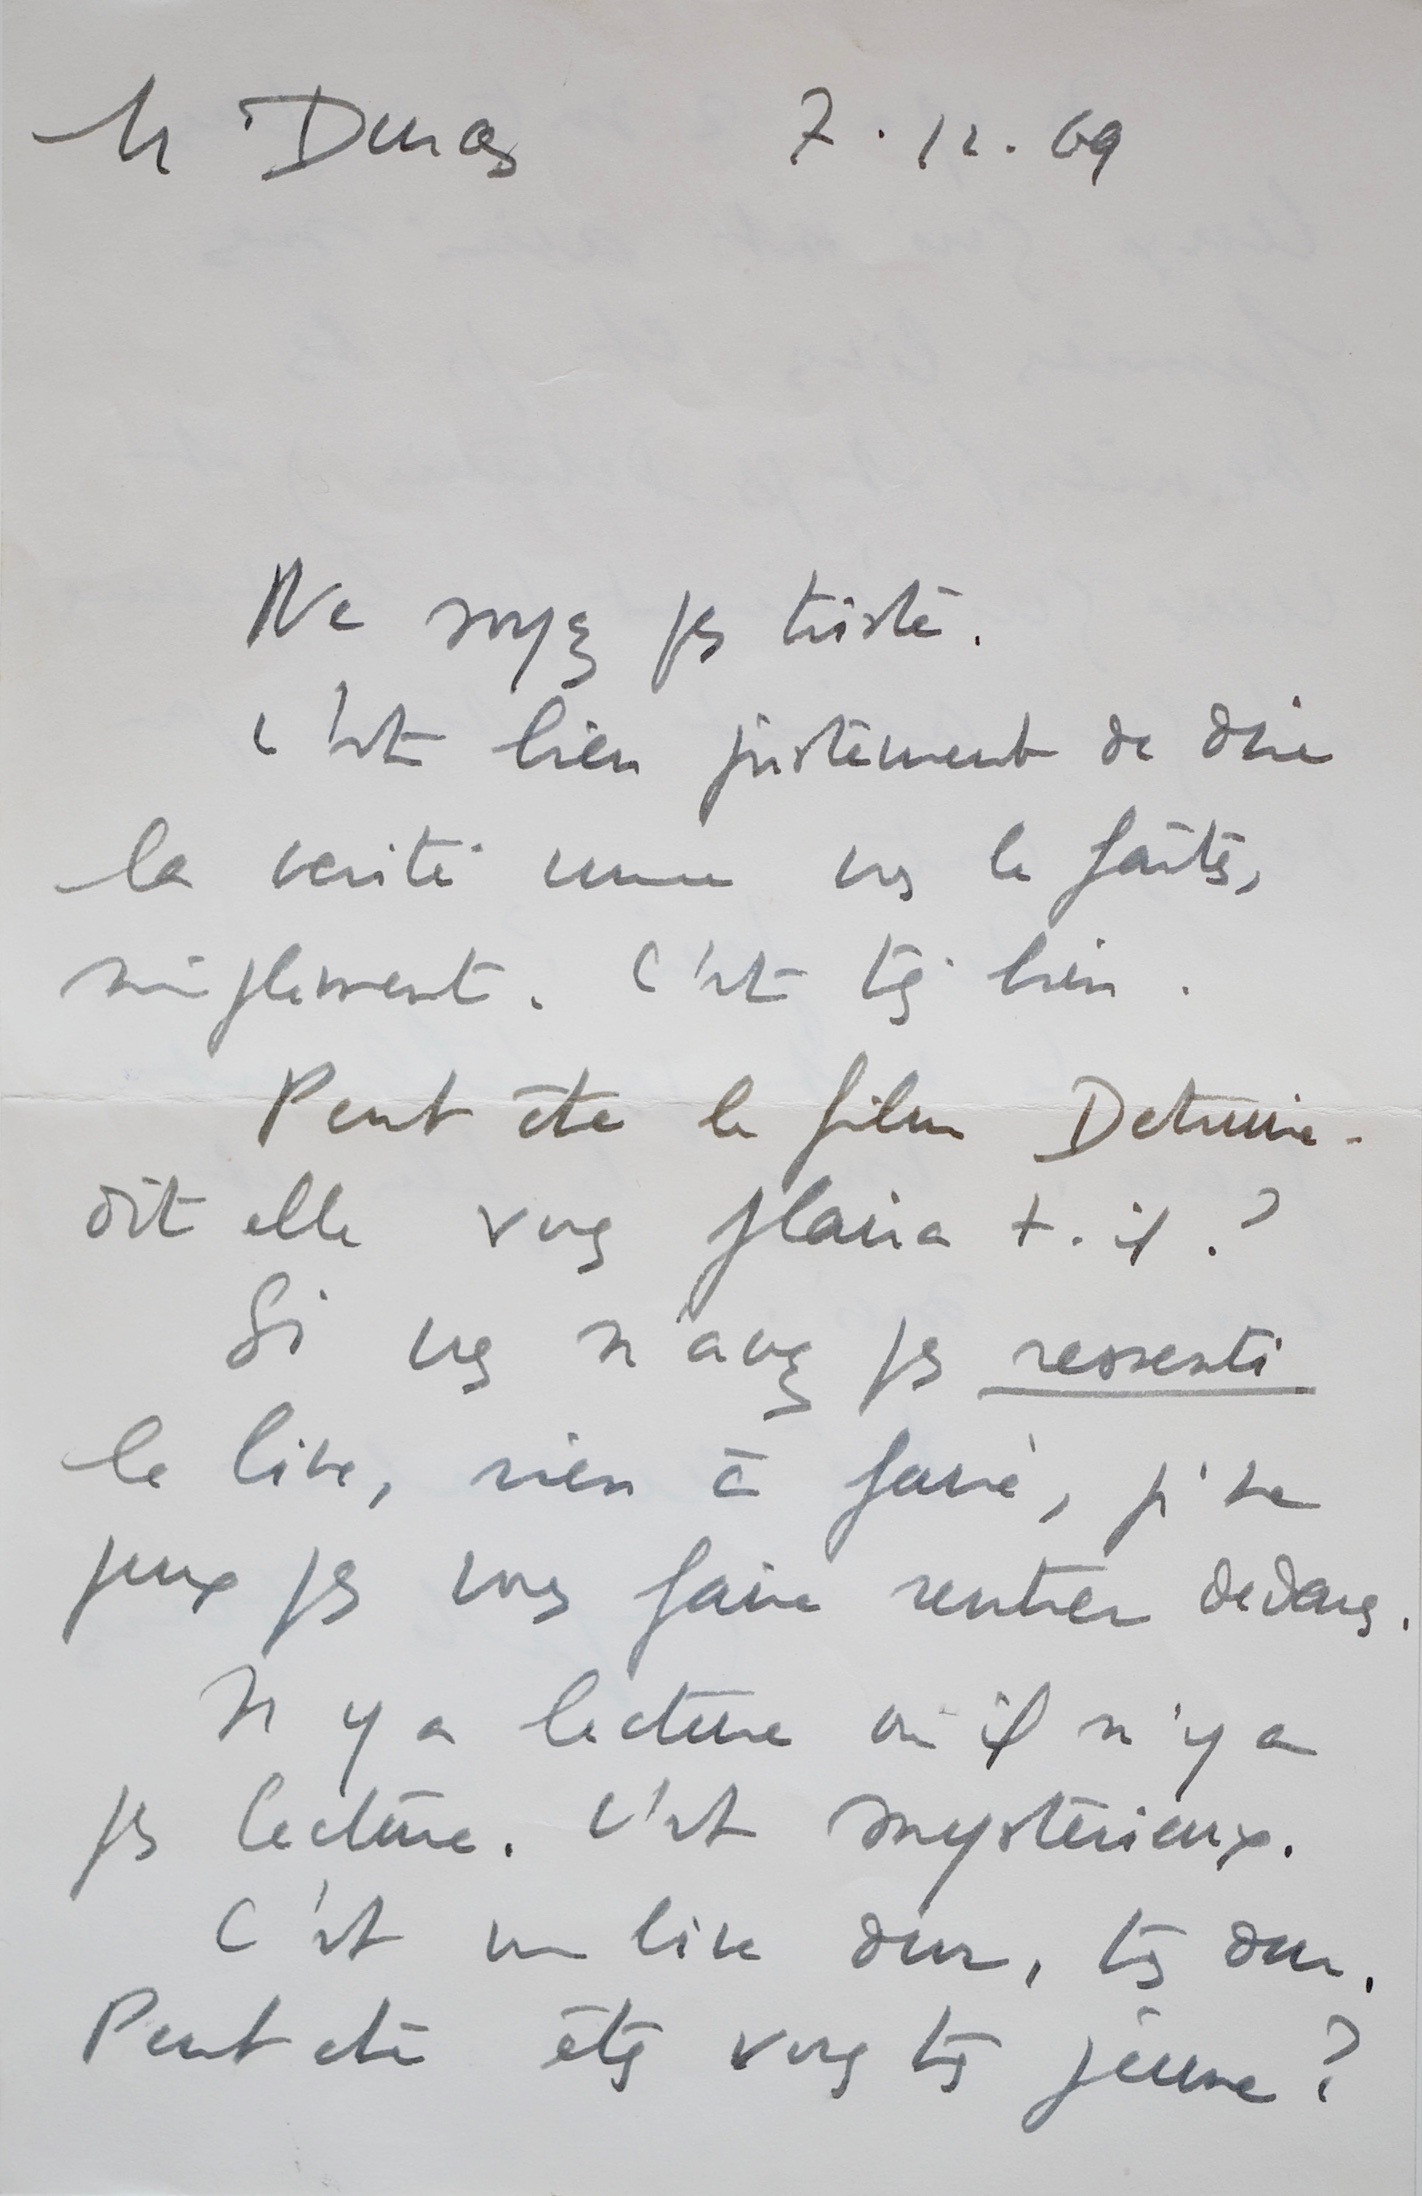 M Duras 7.12.69
Ne soyez pas triste.
C'est bien justement de dire
la verité comme vous le faites,
simplement. C'est très bien.
Peut être le film Detruire-
dit elle vous plaira t.il.?
Si vous n'avez pas ressenti
le livre, rien à faire, je ne
peux pas vous faire rentrer dedans.
Il y a lecture ou il n'y a
pas lecture. C'est mystérieux.
C'est un livre dur, très dur.
Peut etre êtes vous très jeune?